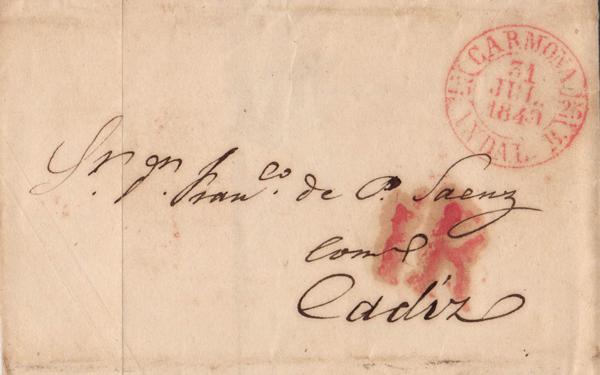 CARMONA
31
JUL.
1845
25
ANDAL. B.
Sr. Dn. Franco. de P. Saenz
Cadiz